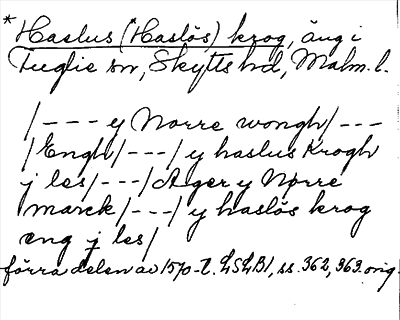 * Haslus (Haslös) krog, äng i
Tuglie sn, Skytts hd, Malm. l.
/--- y Norre wongh/---
/Engh/---/ y haslus Krogh
j les/---/Ager y Nørre
marck/---/ y haslös krog
eng j les/
förra delen av 1570-t. LSLB1, ss. 362, 363. orig.